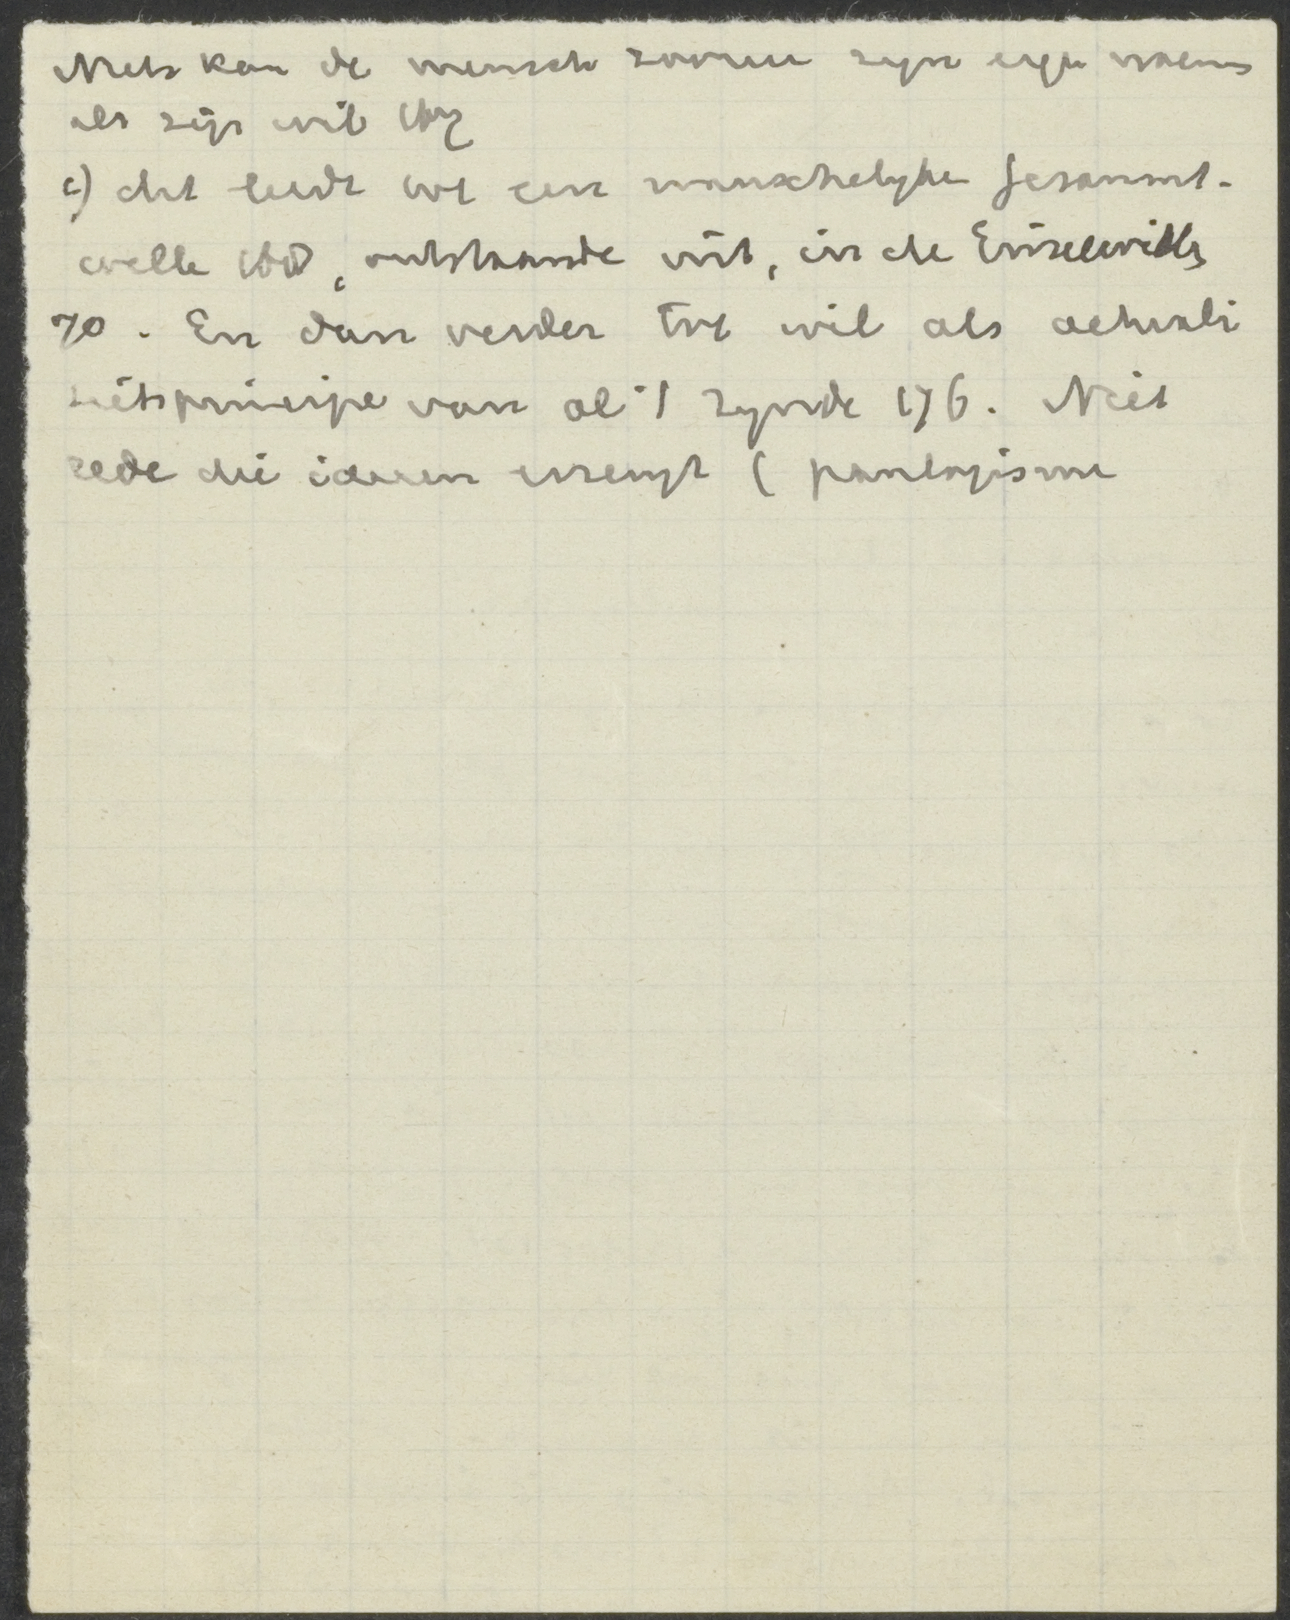 Niets kan de mensch zoozeer zijn eigen noemen
als zijn wil 167
c) dit leidt tot een menschelijke Gesammt-
wille 168, ontstaande uit, in de Einzelwille
70. En dan verder tot wil als actuali
teitsprincipe van al 't zijnde 176. Niet
rede die ideeen brengt ( panlogisme